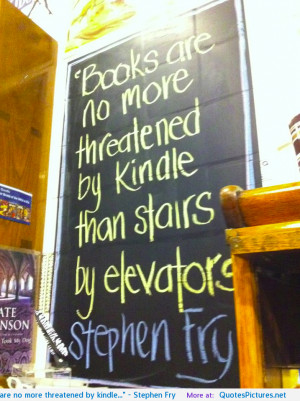 "Books are
no more
threatened
by Kindle
than stairs
by elevators
Stephen Fry
ATE
NSON
Took My Dog
are no more threatened by kindle..." - Stephen Fry More at: QuotesPictures.net